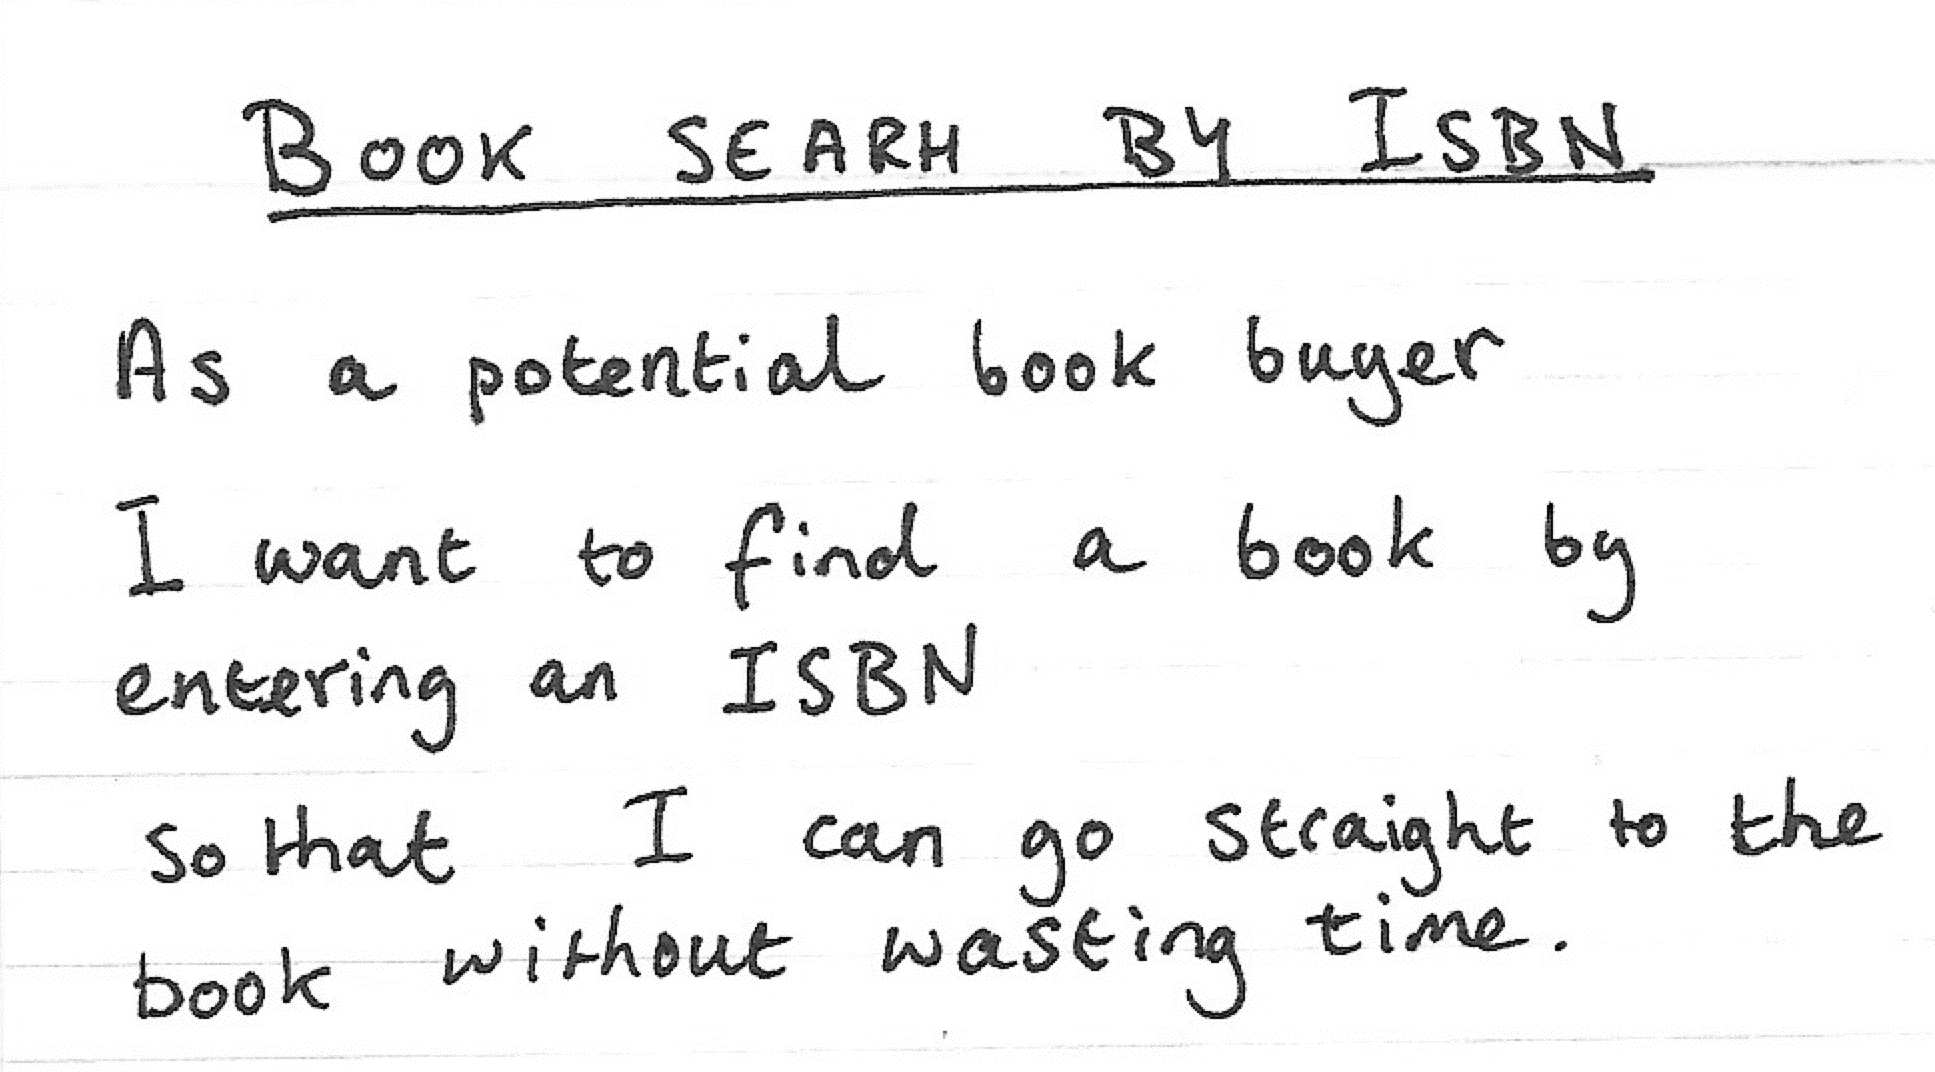 BOOK SEARH BY ISBN
As a potential book buyer
I want to find a book by
entering an ISBN
so that I can go straight to the
book without wasting time.